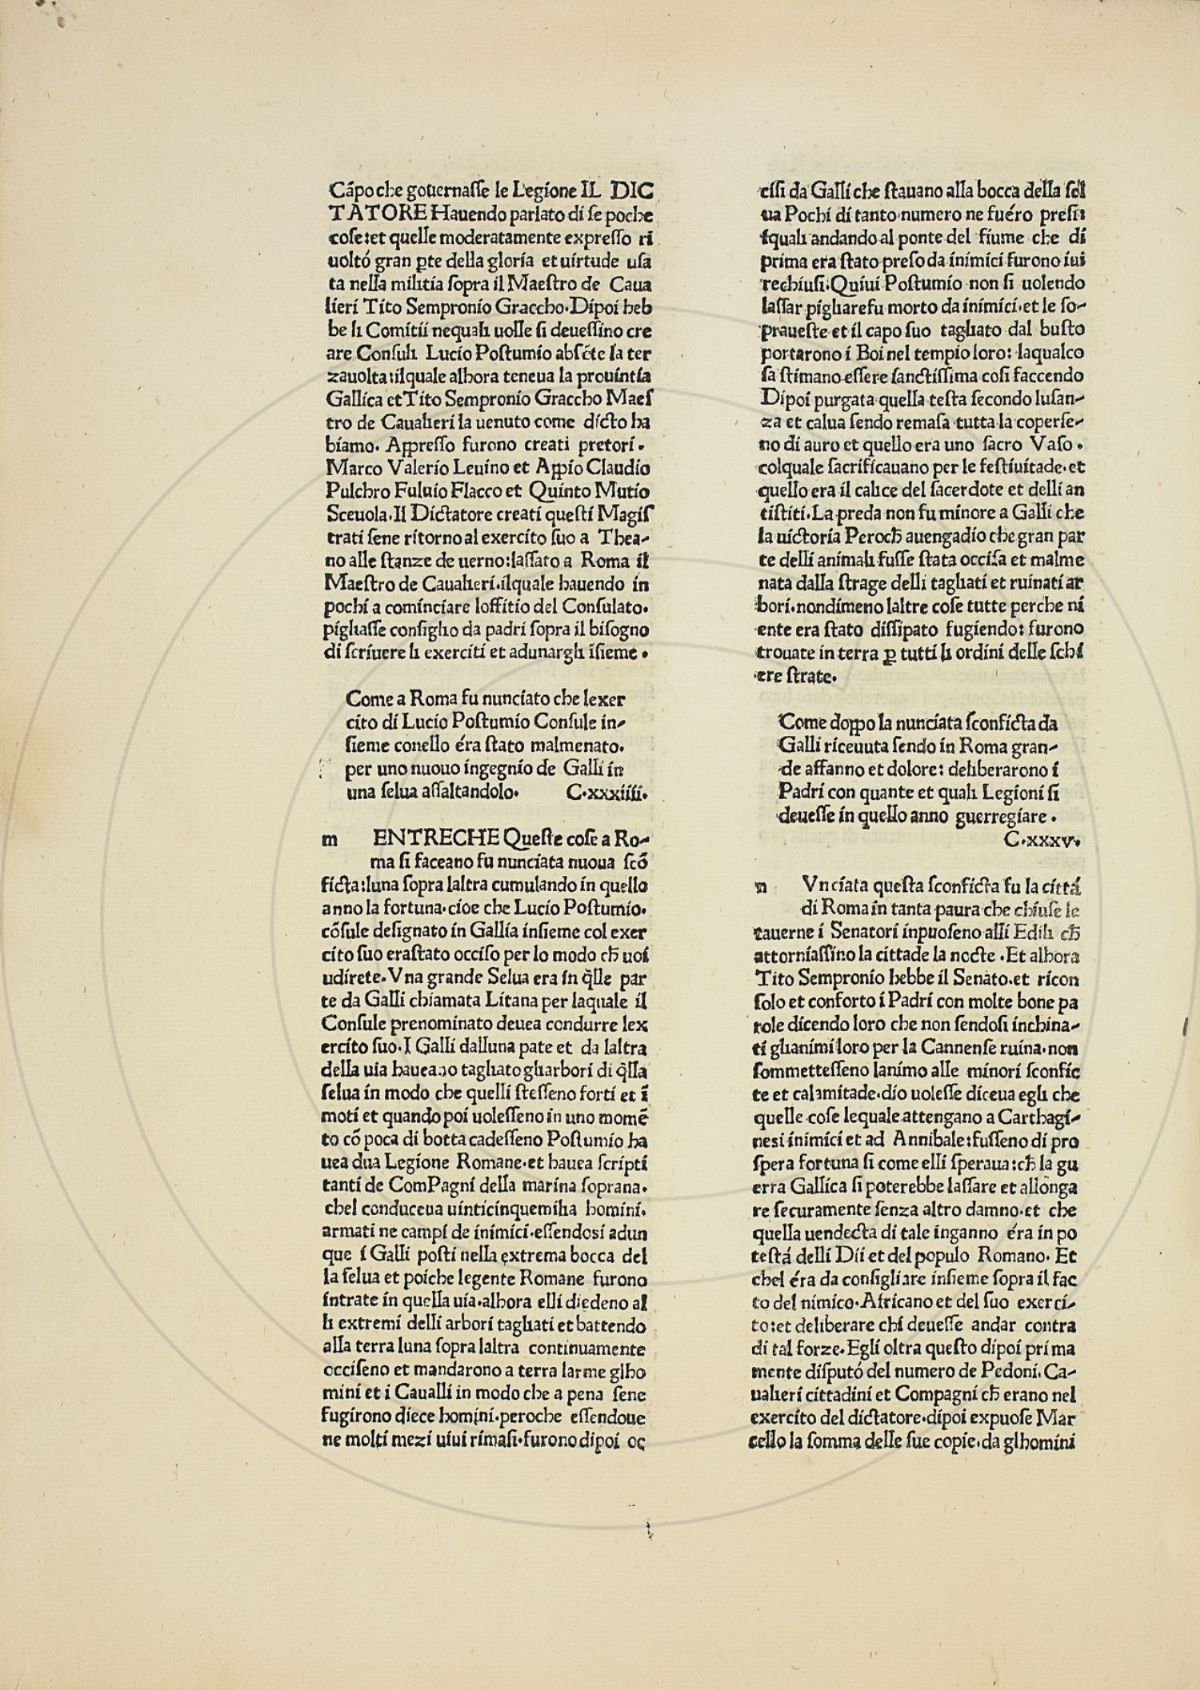 Cãpo che gouernasse le Legione IL DIC
TATORE Hauendo parlato di se poche
cose:et quelle moderatamente expresso ri
uoltó gran ꝑte della gloria et uirtude usa
ta nella militia sopra il Maestro de Caua
lieri Tito Sempronio Graccho. Dipoi heb
be li Comitii nequali uolle si deuessino cre
are Consuli Lucio Postumio absẽte la ter
zauolta:ilquale alhora teneua la prouintia
Gallica et Tito Sempronio Graccho Maes
tro de Caualieri la uenuto come dicto ha
biamo. Appresso furono creati pretori.
Marco Valerio Leuino et Appio Claudio
Pulchro Fuluio Flacco et Quinto Mutio
Sceuola. Il Dictatore creati questi Magis
trati sene ritorno al exercito suo a Thea-
no alle stanze de uerno:lassato a Roma il
Maestro de Caualieri.ilquale hauendo in
pochi a cominciare loffitio del Consulato.
pigliasse consiglio da padri sopra il bisogno
di scriuere li exerciti et adunargli ĩsieme.
Come a Roma fu nunciato che lexer
cito di Lucio Postumio Consule in-
sieme conello éra stato malmenato.
per uno nuouo ingegnio de Galli in
una selua assaltandolo. C.xxxiiii.
m ENTRECHE Queste cose a Ro-
ma si faceano fu nunciata nuoua scõ
ficta:luna sopra laltra cumulando in quello
anno la fortuna.cioe che Lucio Postumio.
cõsule designato in Gallia insieme col exer
cito suo erastato occiso per lo modo cħ uoi
udirete. Vna grande Selua era in q̃lle par
te da Galli chiamata Litana per laquale il
Consule prenominato deuea condurre lex
ercito suo. I Galli dalluna pate et da laltra
della uia haueano tagliato gliarbori di q̃lla
selua in modo che quelli stesseno forti et ĩ
moti et quando poi uolesseno in uno momẽ
to cõ poca di botta cadesseno Postumio ha
uea dua Legione Romane.et hauea scripti
tanti de ComPagni della marina soprana.
chel conduceua uinticinquemilia homini.
armati ne campi de inimici.essendosi adun
que i Galli posti nella extrema bocca del
la selua et poiche legente Romane furono
intrate in quella uia.alhora elli diedeno al
li extremi delli arbori tagliati et battendo
alla terra luna sopra laltra continuamente
occiseno et mandarono a terra larme glho
mini et i Caualli in modo che a pena sene
fugirono diece homini.peroche essendoue
ne molti mezi uiui rimasi.furono dipoi oc
cisi da Galli che stauano alla bocca della sel
ua Pochi di tanto numero ne fuéro presi:
iquali andando al ponte del fiume che di
prima era stato preso da inimici furono iui
rechiusi. Quiui Postumio non si uolendo
lassar pigliarefu morto da inimici.et le so-
praueste et il capo suo tagliato dal busto
portarono i Boi nel tempio loro: laqualco
sa stimano essere sanctissima cosi faccendo
Dipoi purgata quella testa secondo lusan-
za et calua sendo remasa tutta la coperse-
no di auro et quello era uno sacro Vaso.
colquale sacrificauano per le festiuitade.et
quello era il calice del sacerdote et delli an
tistiti. La preda non fu minore a Galli che
la uictoria Perocħ auengadio che gran par
te delli animali fusse stata occisa et malme
nata dalla strage delli tagliati et ruinati ar
bori.nondimeno laltre cose tutte perche ni
ente era stato dissipato fugiendo: furono
trouate in terra ꝑ tutti li ordini delle schi
ere strate.
Come doppo la nunciata sconficta da
Galli riceuuta sendo in Roma gran-
de affanno et dolore: deliberarono i
Padri con quante et quali Legioni si
deuesse in quello anno guerregiare.
C.xxxv.
n Vnciata questa sconficta fu la cittá
di Roma in tanta paura che chiuse le
tauerne i Senatori inpuoseno alli Edili cħ
attorniassino la cittade la nocte. Et alhora
Tito Sempronio hebbe il Senato.et ricon
solo et conforto i Padri con molte bone pa
role dicendo loro che non sendosi inchina-
ti glianimi loro per la Cannense ruina.non
sommettesseno lanimo alle minori sconfic
te et calamitade.dio uolesse diceua egli che
quelle cose lequale attengano a Carthagi-
nesi inimici et ad Annibale:fusseno di pro
spera fortuna si come elli speraua:cħ la gu
erra Gallica si poterebbe lassare et allonga
re securamente senza altro damno.et che
quella uendecta di tale inganno éra in po
testá delli Dii et del populo Romano. Et
chel éra da consigliare insieme sopra il fac
to del nimico. Africano et del suo exerci-
to:et deliberare chi deuesse andar contra
di tal forze. Egli oltra questo dipoi prima
mente disputó del numero de Pedoni. Ca-
ualieri cittadini et Compagni cħ erano nel
exercito del dictatore.dipoi expuose Mar
cello la somma delle sue copie.da glhomini